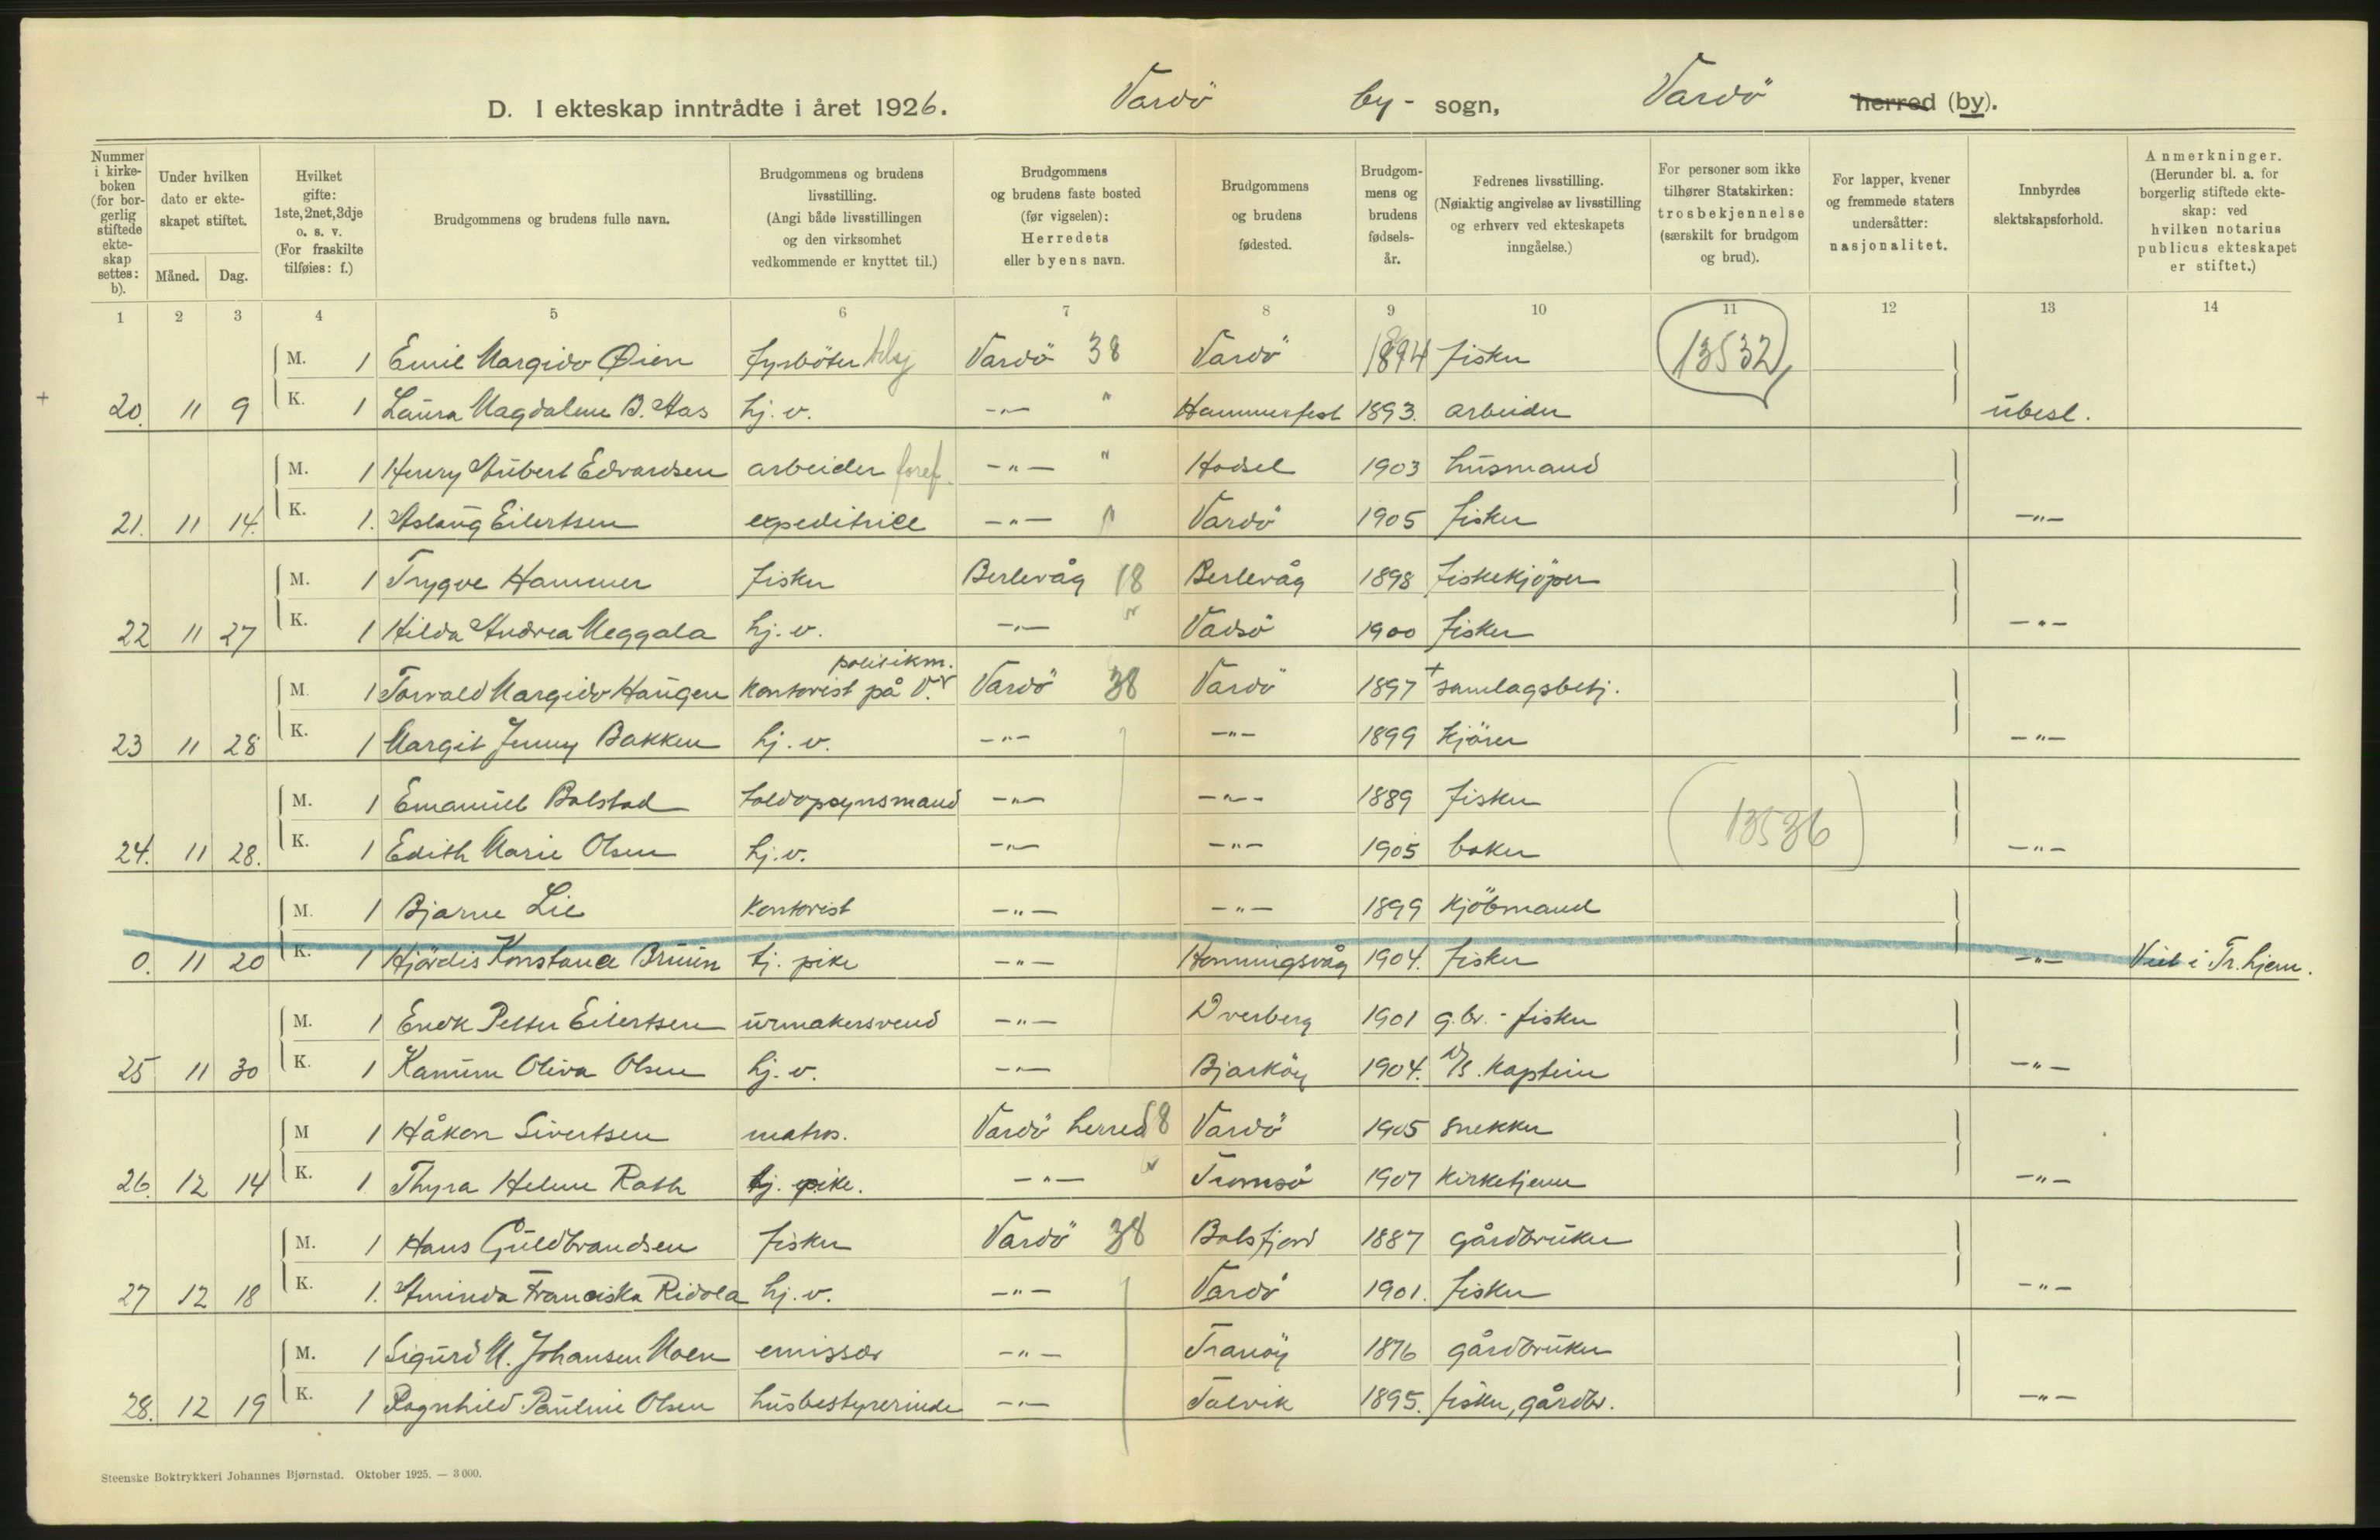 D. I ekteskap inntrådte i året 1926. Vardö by- sogn, Vardö herred (by).
Nummer i kirke-boken (for bor-gerlig stiftede ekte-skap settes: b).
Under hvilken dato er ekte-skapet stiftet.
Måned. Dag.
Hvilket gifte: 1ste, 2net, 3dje o. s. v. (For fraskilte tilføies: f.)
Brudgommens og brudens fulle navn.
Brudgommens og brudens livsstilling. (Angi både livsstillingen og den virksomhet vedkommende er knyttet til.)
Brudgommens og brudens faste bosted (før vigselen): Herredets eller byens navn.
Brudgommens og brudens fødested.
Brudgom-mens og brudens fødsels-år.
Fedrenes livsstilling. (Nøiaktig angivelse av livsstilling og erhverv ved ekteskapets inngåelse.)
For personer som ikke tilhører Statskirken: trosbekjennelse (særskilt for brudgom og brud).
For lapper, kvener og fremmede staters undersåtter: nasjonalitet.
Innbyrdes slektskapsforhold.
Anmerkninger. (Herunder bl. a. for borgerlig stiftede ekte-skap: ved hvilken notarius publicus ekteskapet er stiftet.)
1 2 3 4 5 6 7 8 9 10 11 12 13 14
M. 1 Emil Margido Øien fyrböter Vardö 38 Vardö 1894 fisker 13532
+ 20. 11 9 K. 1 Laura Magdalene B. Aas hj. v. -"- " Hammerfest 1893. arbeider ubesl.
M. 1 Henry Hubert Edvardsen arbeider -"- " Hadsel 1903 husmand
21. 11 14. K. 1. Aslaug Eilertsen expeditrice -"- " Vardö 1905 fisker -"-
M. 1 Trygve Hammer fisker Berlevåg 18 Berlevåg 1898 fiskekjöper
22 11 27 K. 1 Hilda Andrea Meggala hj. v. -"- " Vadsö 1900 fisker -"-
politikm.
M. 1 Torvald Margido Haugen kontorist på V. Vardö 38 Vardö 1897 + samlagsbetj.
23 11 28 K. 1 Margit Jenny Bakken hj. v. -"- -"- 1899 kjörer -"-
M. 1 Emanuel Balstad toldopsynsmand -"- -"- 1889 fisker
24. 11 28. K. 1 Edith Marie Olsen hj. v. -"- -"- 1905 baker (13536) -"-
M. 1 Bjarne Lie kontorist -"- -"- 1899 kjöbmand
0. 11 20 K. 1 Hjördis Konstance Bruun tj. pike -"- Honningsvåg 1904. fisker -"- Viet i Tr.hjem.
M. 1 Enok Petter Eilertsen urmakersvend -"- Dverberg 1901 g.br. - fisker
25 11 30 K. 1 Oliva Olsen hj. v. -"- Bjarköy 1904. D/S. kaptein -"-
M 1 Håkon Sivertsen matros. Vardö herred 58 Vardö 1905 snekker
26. 12 14 K. 1. Thyra Helene Rath tj. pike. -"- " Tromsö 1907 kirketjener -"-
M. 1 Hans Guldbrandsen fisker Vardö 38 Balsfjord 1887 gårdbruker
27 12 18 K. 1. Aminda Franciska Ridola hj. v. -"- Vardö 1901. fisker -"-
M. 1 Sigurd M. Johansen Moen emissær -"- Tranöy 1876 gårdbruker
28. 12 19 K. 1 Ragnhild Pauline Olsen husbestyrerinde -"- Talvik 1895. fisker, gårdbr. -"-
Steenske Boktrykkeri Johannes Bjørnstad. Oktober 1925. — 3 000.